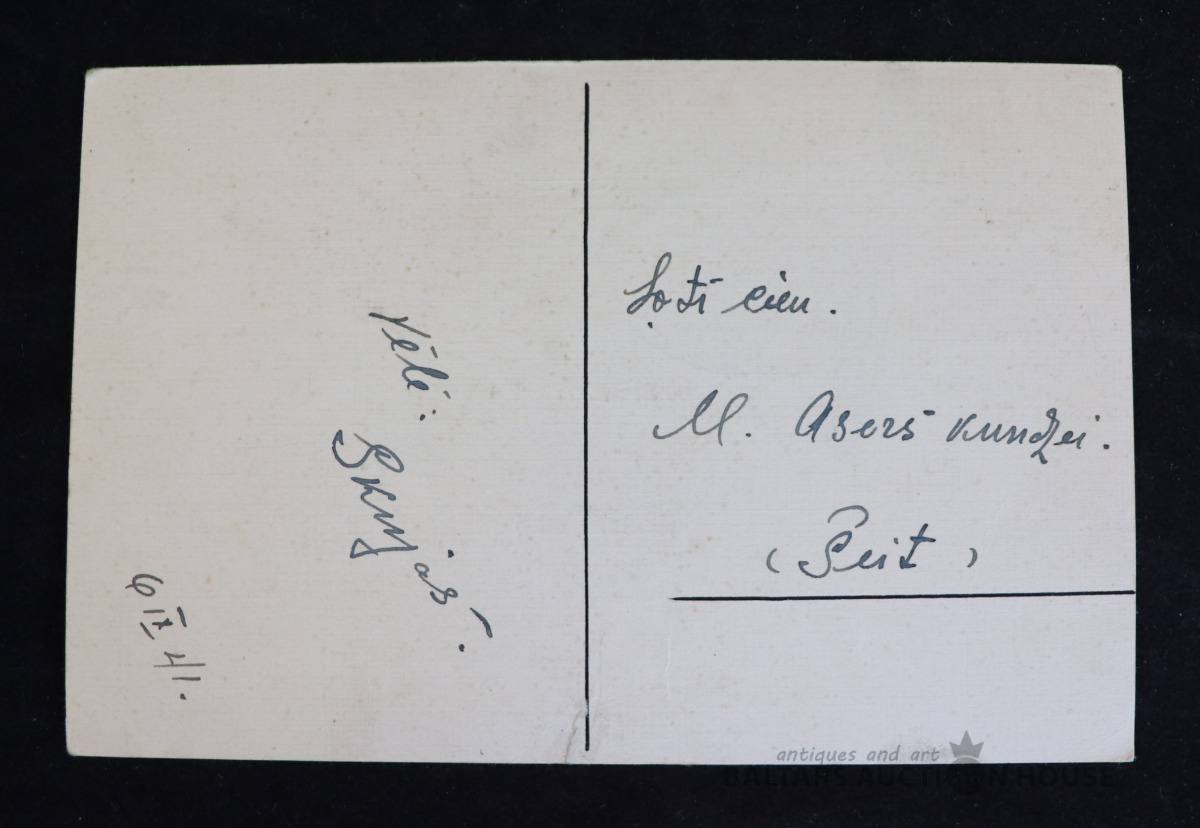 Vēlē:
Skujas.
6 IX 41.
Ļoti cien.
M. Asers kundzei.
(Šeit)
antiques and art
BALTARS AUCTION HOUSE